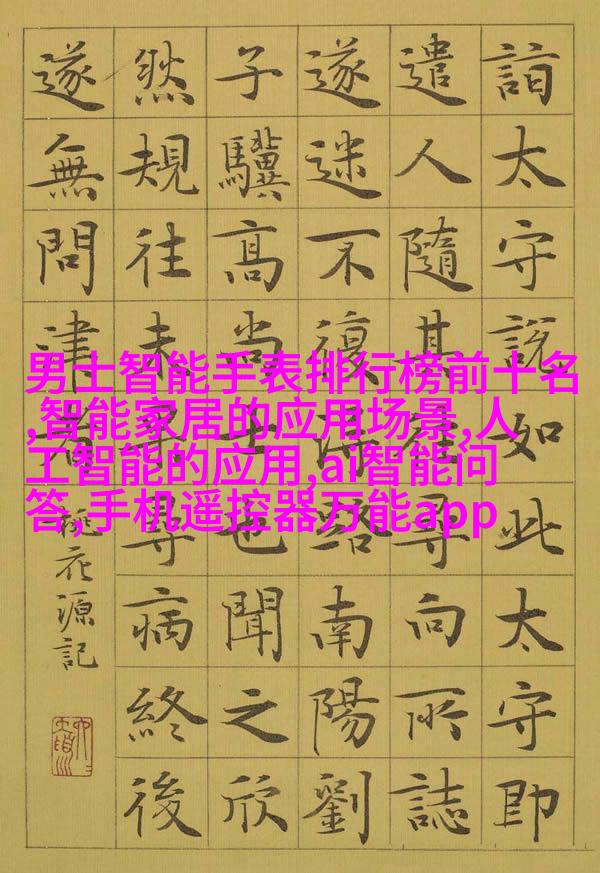 詣太守說如此太守即
遣人隨其往尋向所誌
遂迷不復得路南陽劉
子驥高尚士也聞之欣
然規往未果尋病終後
遂無問津者
桃花源記
男士智能手表排行榜前十名
,智能家居的应用场景,人
工智能的应用,ai智能问
答,手机遥控器万能app